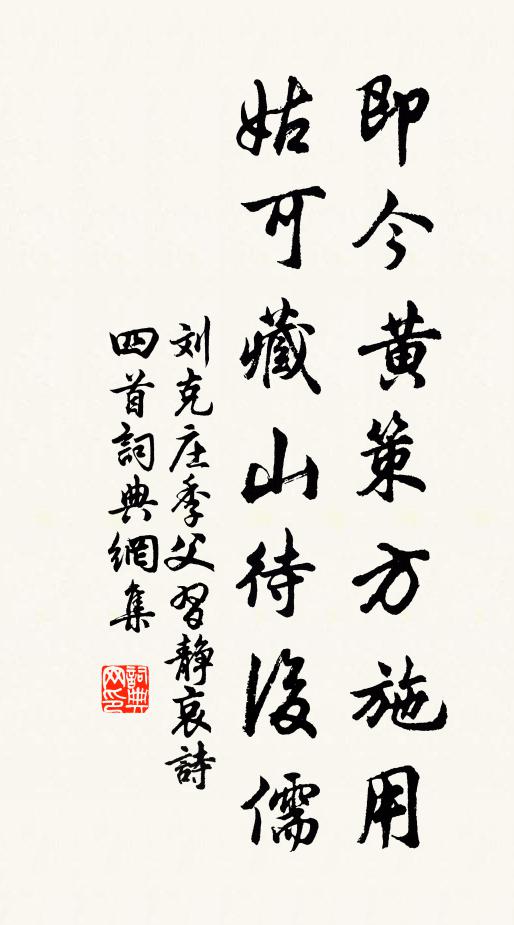 即今黄策方施用
姑可藏山待後儒
刘克庄季父習靜哀詩
四首詞典網集
詞典網印